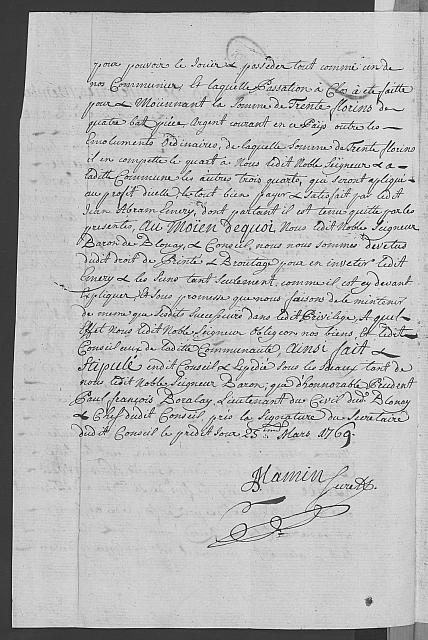 pour pouvoir le Jouir & posséder tout comme un de
nos Communier, Et laquelle Passation à Clos a été faitte
pour & Moiennant la Somme de Trente florins de
quatre batz piéce, Argent courant en ce Païs outre les
Emoluments Ordinaires, de laquelle Somme de Trente florins
il en compete le quart à Nous ledit Noble Seigneur & a
ladite Commune les autres trois quarts, qui seront apliqué
au profit d'icelle le tout bien payé & satisfait par ledit
Jean Abram Emery, dont partant il est tenu quite par les
presentes, Au Moien dequoi, Nous ledit Noble Seigneur
Baron de Blonay, & Conseil, nous nous sommes devetus
dudit droit de & Broutage pour en invetir ledit
Emery & les Siens tant Seulement, comme il est cy devant
Expliquer, Et sous promesse que nous faisons de le mintenir
de meme que sesdits Successeurs dans ledit Privilége, A quel
Effet Nous ledit Noble Seigneur obligeons nos biens, Et ledit
Conseil ceux de ladite Communauté, Ainsi fait &
Stipulé endit Conseil & Expédié sous les Sceaux tant de
nous ledit Noble Seigneur Baron, que d'honorable Prudent
Paul François Lieutenant du Civil dud. Blonay
& Chef dudit Conseil, pris la Signature du Secretaire
dudit Conseil le predit Jour 25.eme Mars 1769.
Mamin Secret.